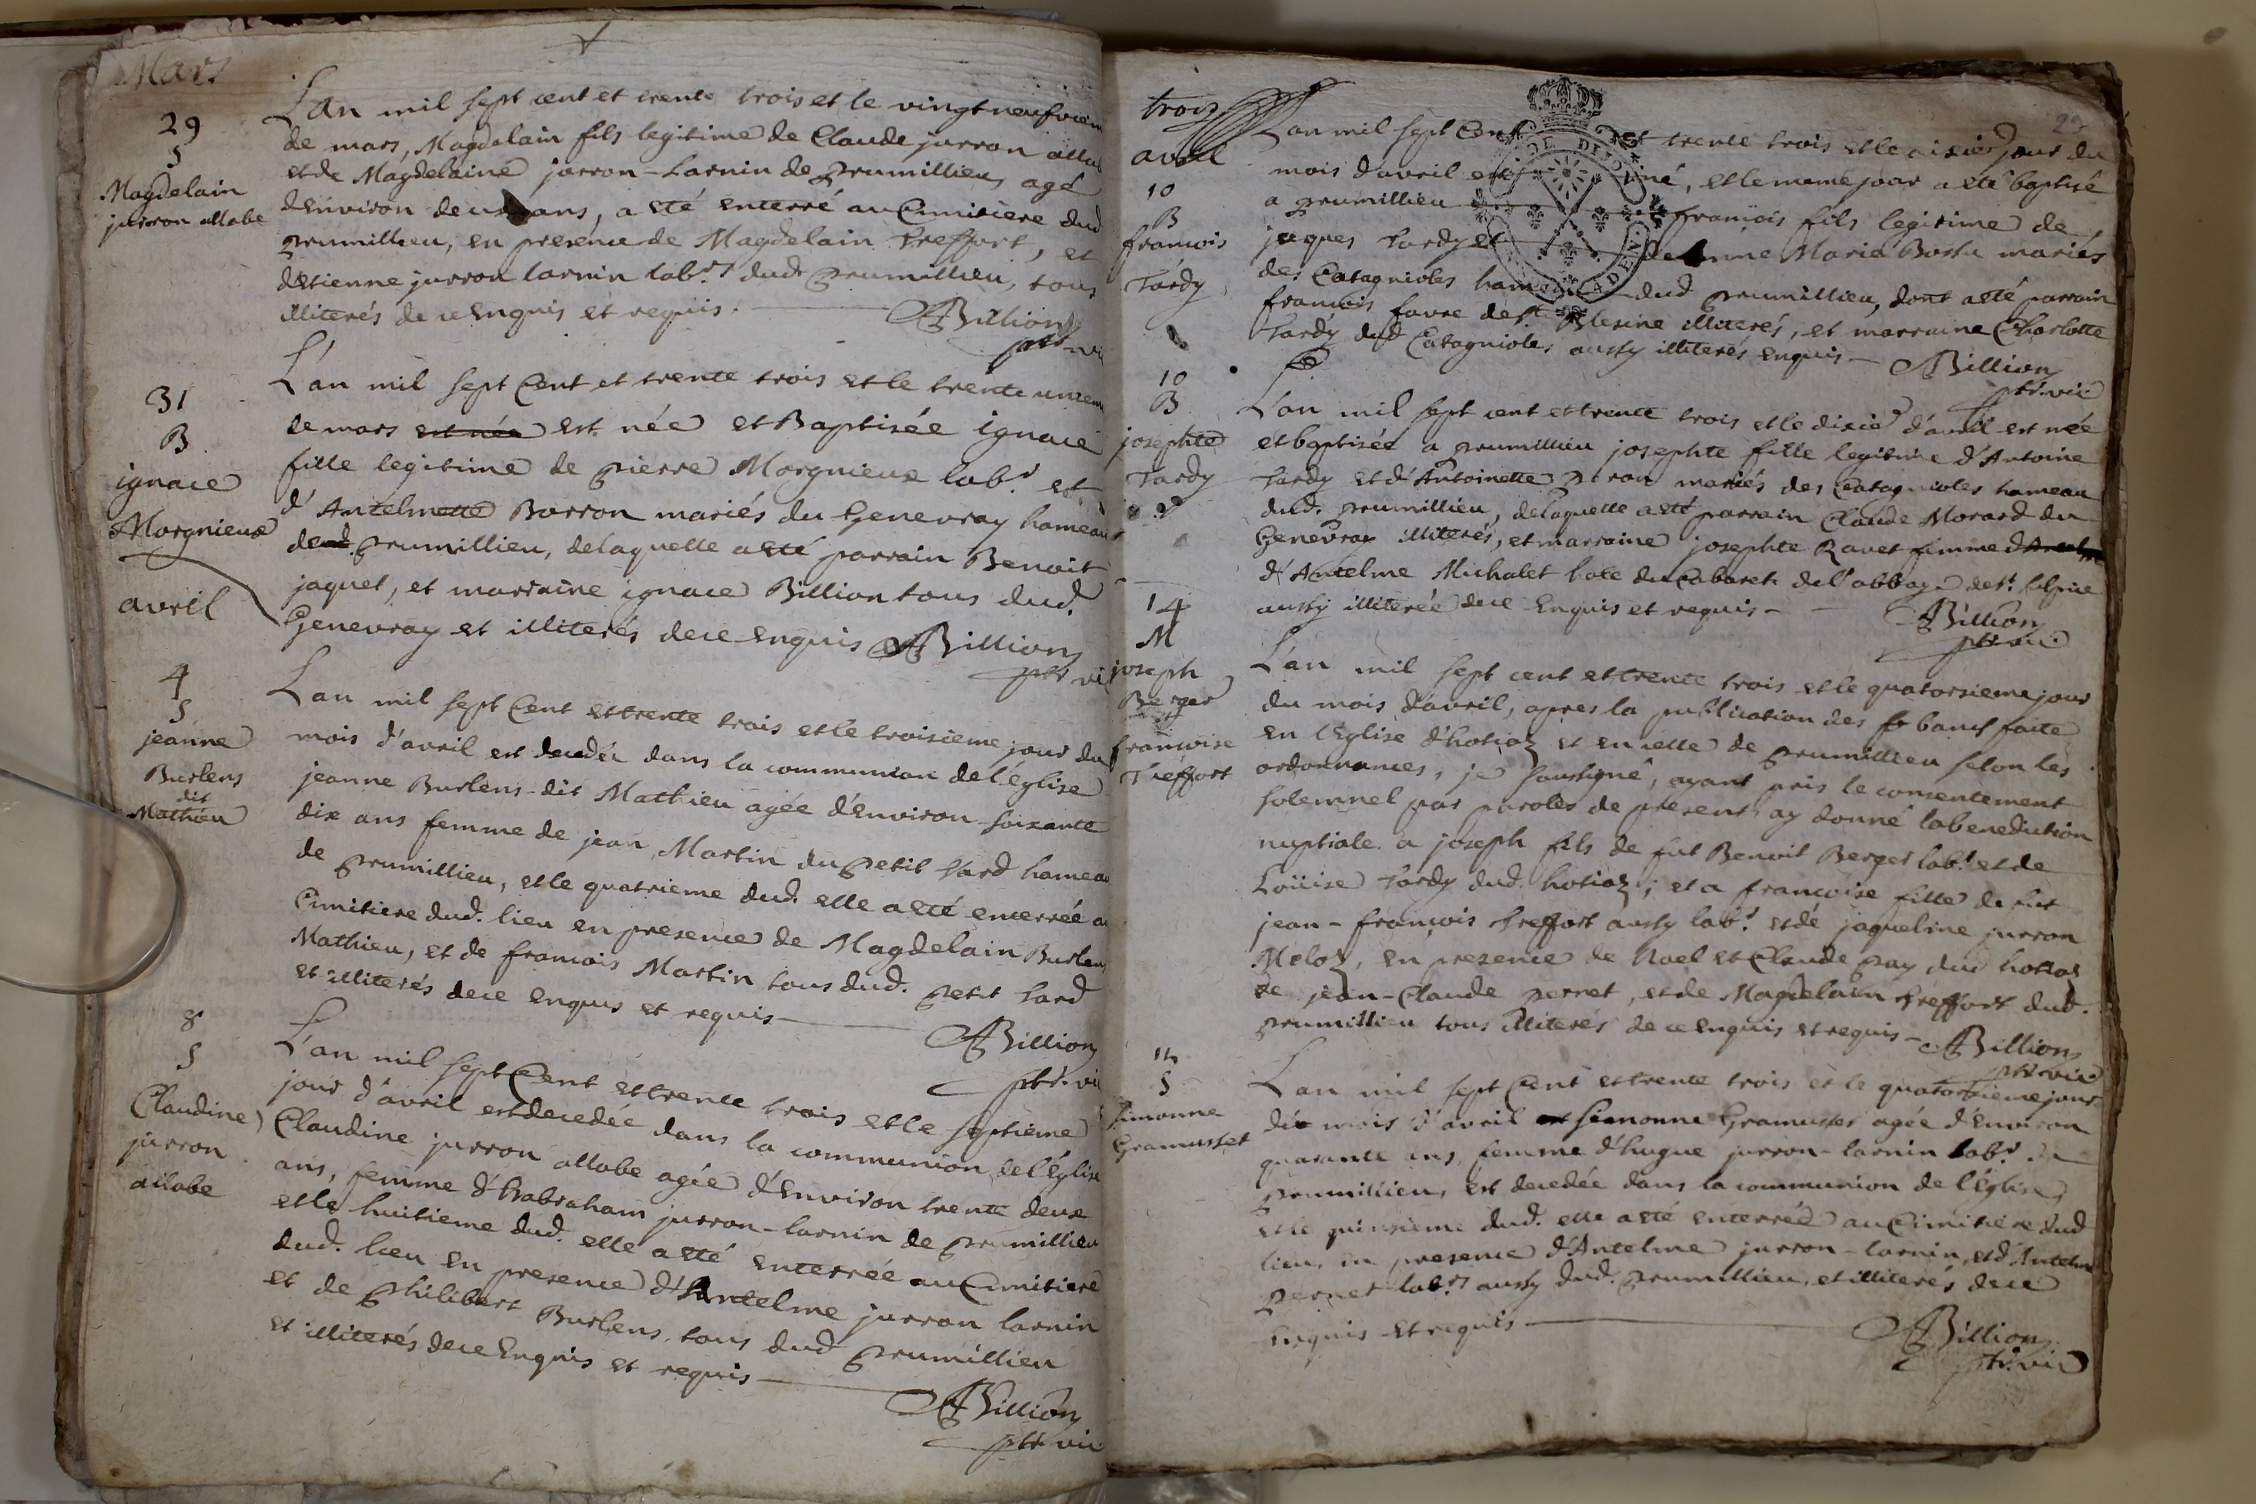 Mars
29
S
Magdelain
jurron allobe
L'an mil sept cent et trente trois et le vingt neufviem
de mars, Magdelain fils legitime de Claude jurron allob
et de Magdelaine jurron-Larnin de prumillieu, agé
d'Environ deux ans, a eté enterré au Cimitiere dud
prumillieu, en presence de Magdelain treffort, et
d'Etienne jurron larnin labrs dud prumillieu, tous
illiterés de ce Enquis et requis.
Billion
ptr vi
31
B
ignace
Morgnieux
L'an mil sept Cent et trente trois et le trente unzem
de mars est née est née et Baptisée ignace
fille legitime de pierre Morgnieux labr et
d'Antelmette Borron mariés du Genevray hameau
dud. prumillieu, de laquelle a eté parrain Benoit
jaquet, et marraine ignace Billion tous dud.
Genevray et illiterés de ce Enquis Billion
ptr vi
avril
4
S
jeanne
Burlens
dit
Mathieu
L'an mil sept Cent et trente trois et le troisieme jour du
mois d'avril est decedée dans la communion de l'église
jeanne Burlens-dit Mathieu agée d'Environ soixante
dix ans femme de jean Martin du petit tard hameau
de prumillieu, et le quatrieme dud. elle a eté enterrée au
Cimitiere dud. lieu en presence de Magdelain Burlens
Mathieu, et de francois Martin tous dud. petit tard
et illiterés de ce enquis et requis
Billion
ptr. vi
8
S
Claudine
jurron
allobe
L'an mil sept Cent et trente trois et le septieme
jour d'avril est decedée dans la communion de l'église
Claudine jurron allobe agée d'Environ trente deux
ans, femme d'habraham jurron-larnin de prumillieu
et le huitieme dud. elle a eté enterrée au Cimitiere
dud. lieu en presence d'Antelme jurron larnin
et de philibert Burlens, tous dud prumillieu
et illiterés de ce Enquis et requis
Billion
ptr vic
trois
avril
10
B
francois
Tardy
L'an mil sept Cent et trente trois et le dixie jour du
mois d'avril est né, et le meme jour a eté baptisé
a prumillieu francois fils legitime de
jaques tardy et de Anne Maria Bossu mariés
des Catagnioles hameau dud prumillieu, dont a eté parrain
francois favre de st Blesine illiterés, et marraine Charlotte
tardy dud Catagnioles aussy illiterés enquis Billion
ptr. vic
10
B
josephte
Tardy
L'an mil sept cent et trente trois et le dixie d'avril est née
et baptisée a prumillieu josephte fille legitime d'Antoine
tardy et d'Antoinette peron mariés des Catagnioles hameau
dud. prumillieu, de laquelle a eté parrain Claude Morard du
Genevray illiterés, et marraine josephte Ravet femme
d'Antelme Michalet hote du Cabaret de l'abbaye de st. sulpice
aussy illiterée de ce Enquis et requis
Billion
ptr. vic
14
M
joseph
Berger
francoise
Treffort
L'an mil sept cent et trente trois et le quatorsieme jour
du mois d'avril, apres la publication des bancs faite
en l'Eglise d'hotiaz et en celle de prumillieu selon les
ordonnances, je soussigné, ayant pris le consentement
solemnel par paroles de present, ay donné la benediction
nuptiale a joseph fils de fut Benoit Berger labr et de
Loüise tardy dud. hotiaz; et a francoise fille de fut
jean-francois treffort aussy labr. et de jaqueline jurron
Moloz, en presence de Noel et Claude pay dud hotiaz
de jean-Claude pernet, et de Magdelain treffort dud.
prumillieu tous illiterés de ce enquis et requis
Billion
ptr vic
15
S
Simonne
Gramusset
L'an mil sept Cent et trente trois et le quatorsieme jour
du mois d'avril Simonne Gramusset agée d'Environ
quarante ans, femme d'hugue jurron-larnin labr. de
prumillieu, est decedée dans la communion de l'église,
et le quinsieme dud. elle a eté enterrée au Cimitiere dud
lieu, en presence d'Antelme jurron-larnin, et d'Antelme
pernet labrs aussy dud. prumillieu, et illiterés de ce
enquis et requis
Billion
ptr. vic